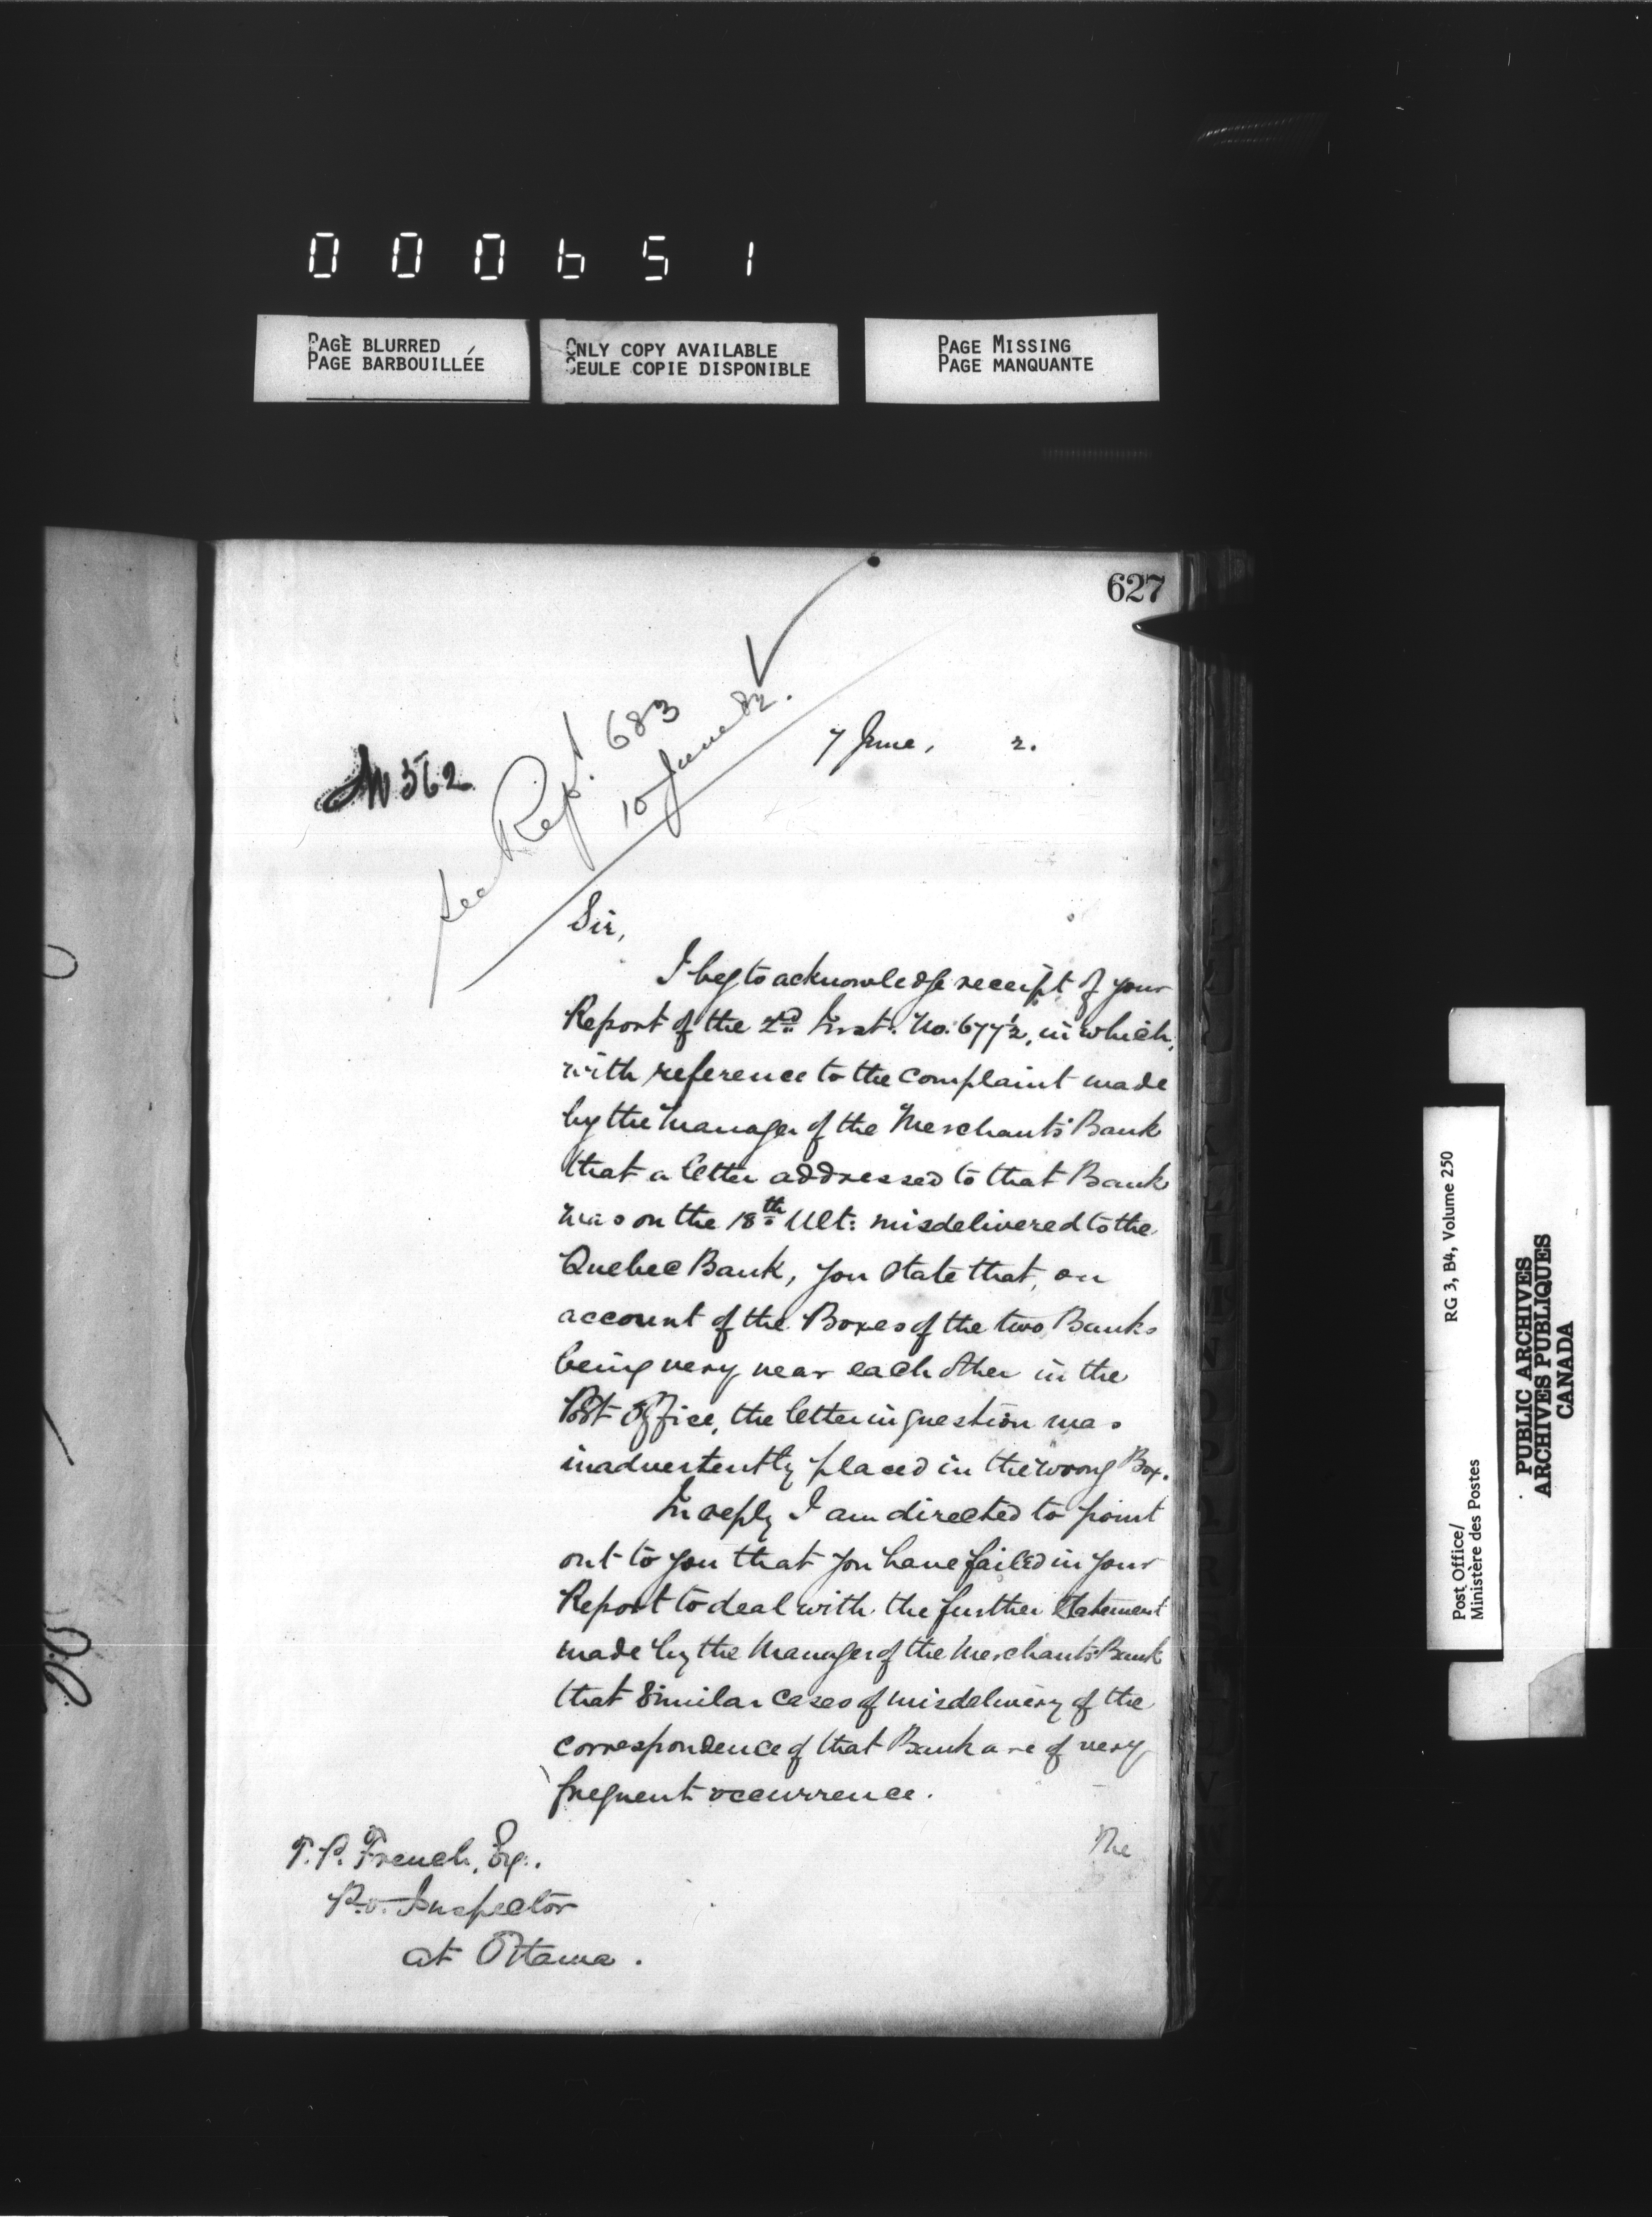 000651
PAGE BLURRED
PAGE BARBOUILLÉE
ONLY COPY AVAILABLE
SEULE COPIE DISPONIBLE
PAGE MISSING
PAGE MANQUANTE
627
See Rept. 683
10 June 82.
7 June, 2.
562
Sir,
I beg to acknowledge receipt of your
Report of the 2nd Inst: No. 677½, in which,
with reference to the complaint made
by the Manager of the Merchants' Bank
that a letter addressed to that Bank
was on the 18th Ult: misdelivered to the
Quebec Bank, you state that, on
account of the Boxes of the two Banks
being very near each other in the
Post Office, the letter in question was
inadvertently placed in the wrong Box.
In reply I am directed to point
out to you that you have failed in your
Report to deal with the further statement
made by the Manager of the Merchants' Bank
that similar cases of misdelivery of the
correspondence of that Bank are of very
frequent occurrence.
The
T. P. French, Esq.,
P.O. Inspector
at Ottawa.
RG 3, B4, Volume 250
Post Office/
Ministère des Postes
PUBLIC ARCHIVES
ARCHIVES PUBLIQUES
CANADA